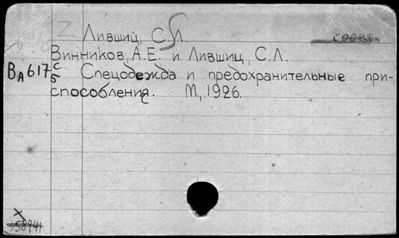 Лившиц, С.Л.
Винников, А.Е. и Лившиц, С.Л.
Ва617 с/5 Спецодежда и предохранительные при-
способления. М, 1926.